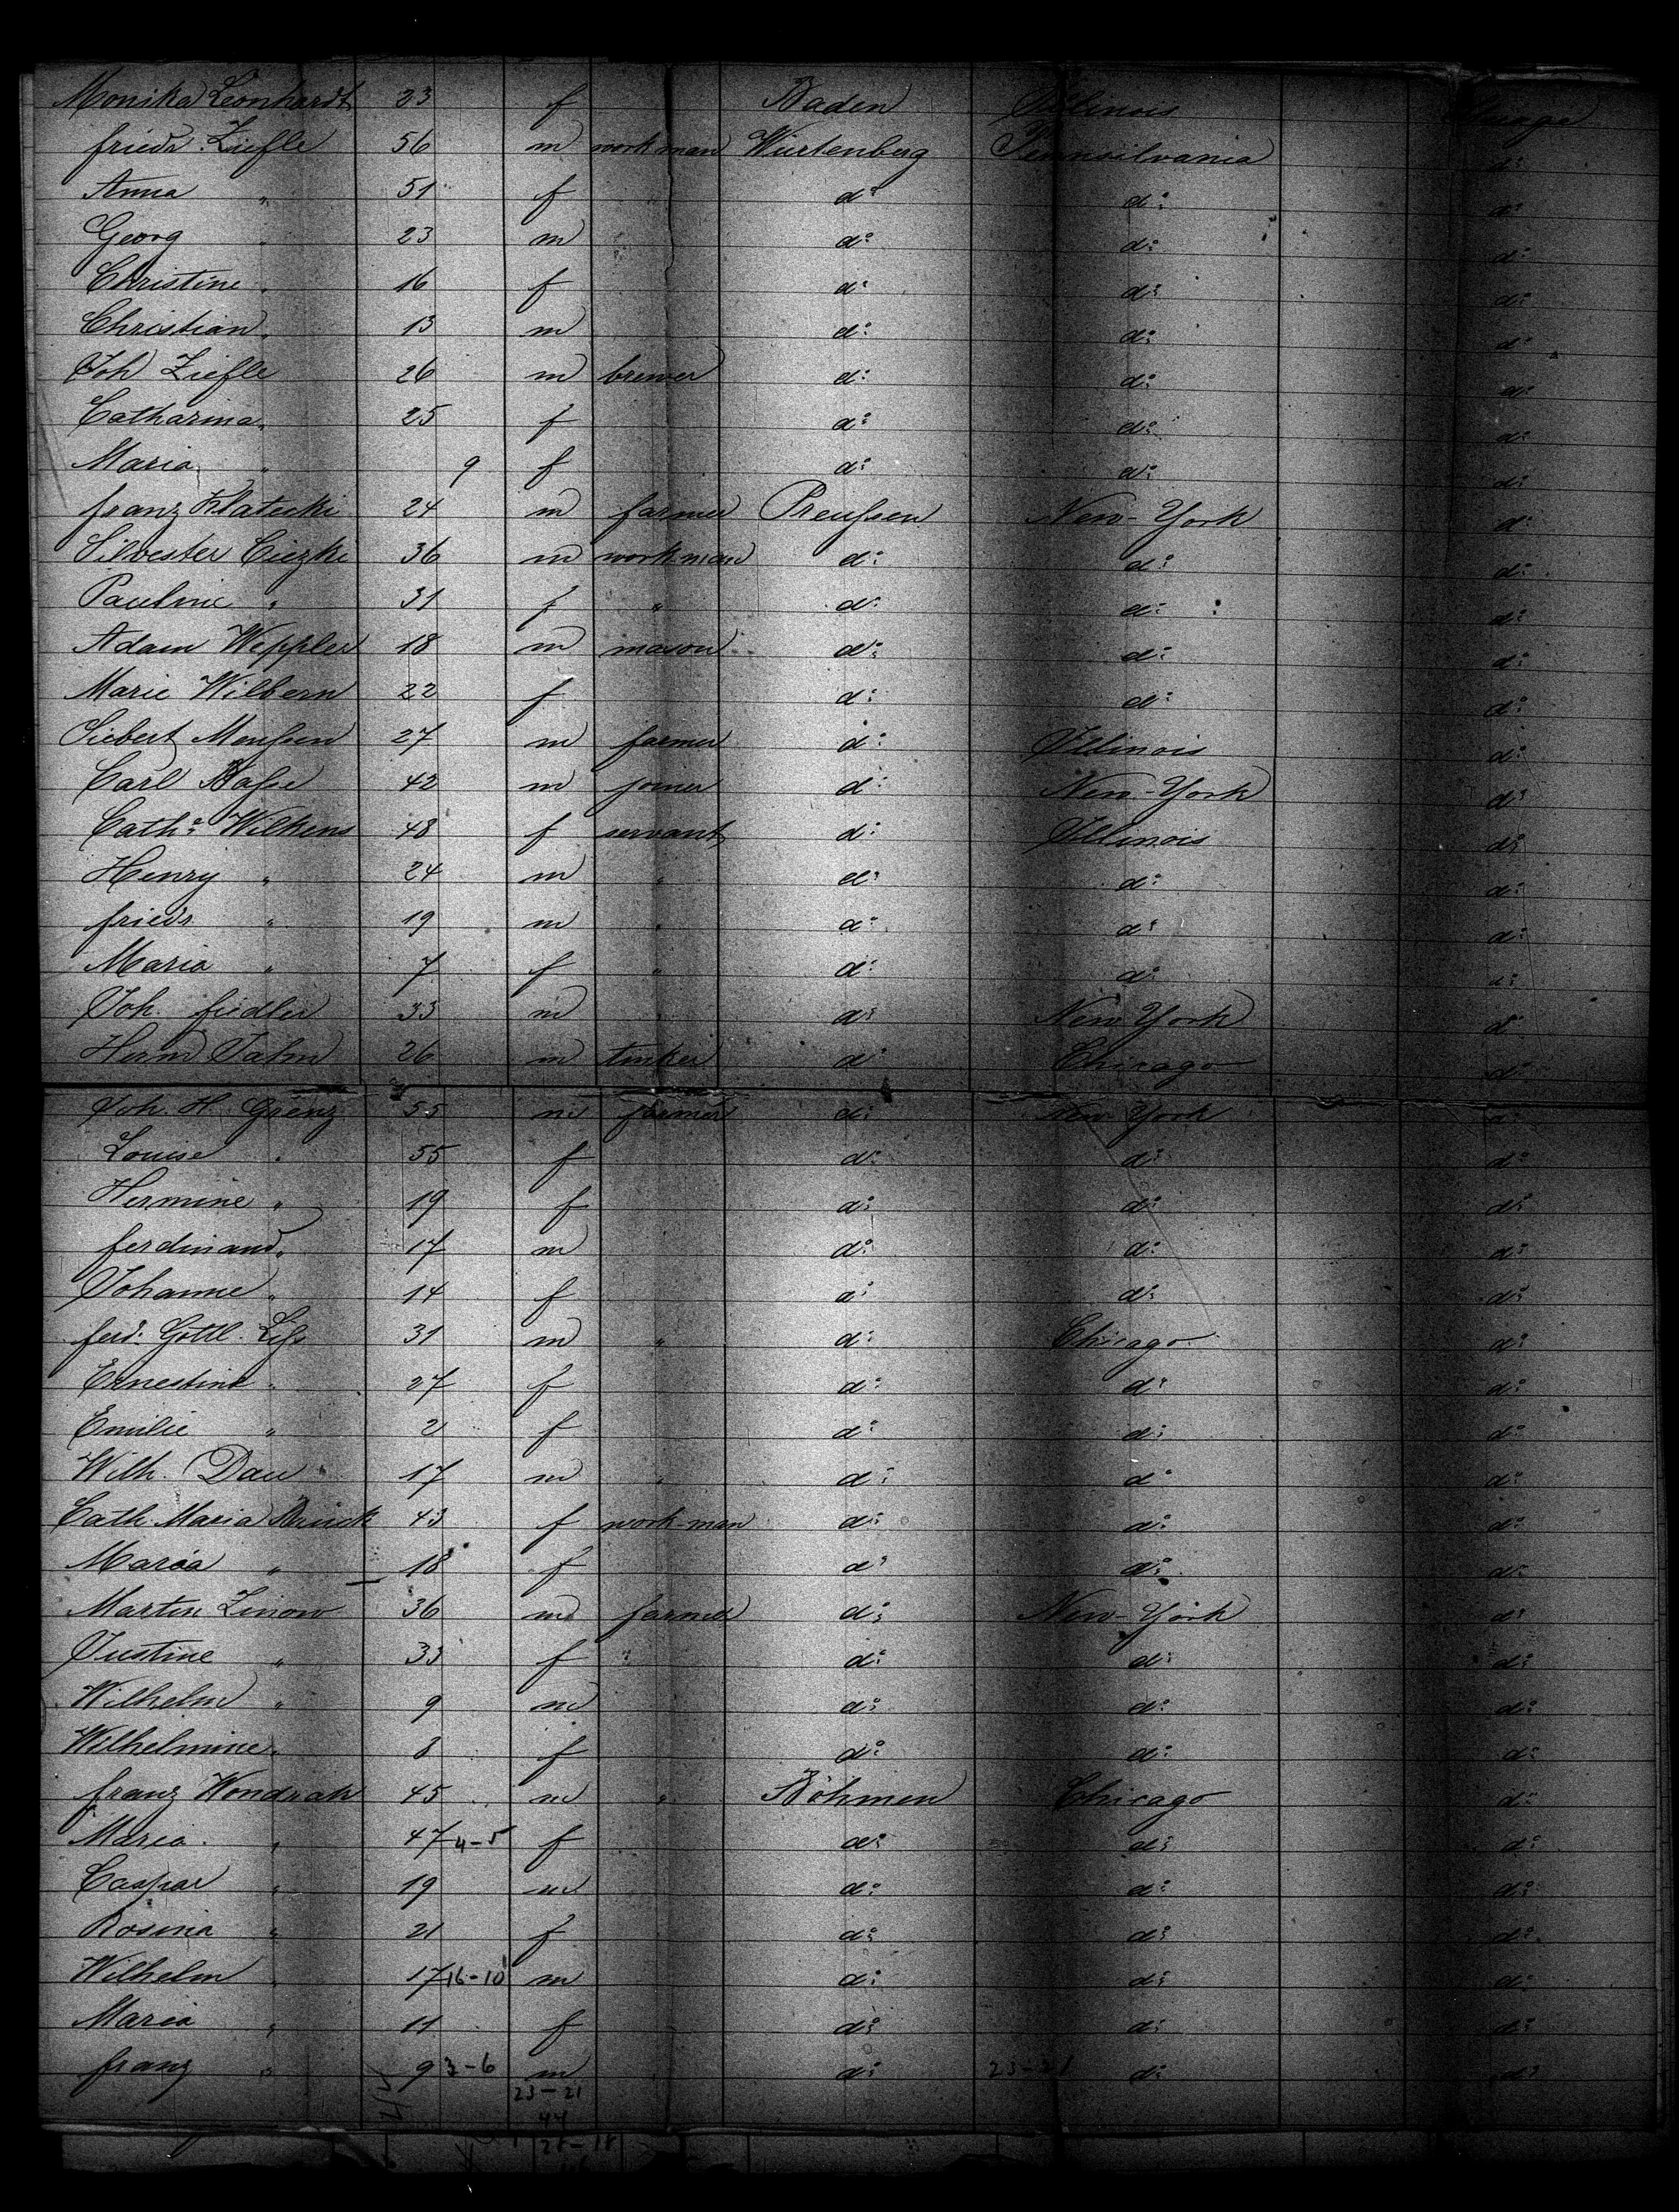 Monika Leonhardt 23 f Baden Illinois
friedr. Ziefle 56 m workman Würtenberg Pennsilvania d:
Anna " 51 f " d: d: d:
Georg " 23 m " d: d: d:
Christine " 16 f d: d: d:
Christian " 13 m d: d: d:
Joh Ziefle 26 m brewer d: d: d:
Catharina " 25 f d: d: d:
Maria " 9 f d: d: d:
franz Klatecki 24 m farmer Preussen New-York d:
Silvester Ciezki 36 m workman d: d: d:
Pauline " 31 f " d: d: d:
Adam Weppler 18 m mason d: d: d:
Marie Wilbern 22 f d: d: d:
Siebert Menssen 27 m farmer d: Illinois d:
Carl Basse 42 m joiner d: New-York d:
Cath: Wilkens 48 f servant d: Illinois d:
Henry " 24 m " d: d: d:
friedr " 19 m " d: d: d:
Maria " 7 f " d: d: d:
Joh. fiedler 33 m " d: New York d:
Herm 26 m d: Chicago d:
Joh. H. Grenz 55 m farmer d: New-York d:
Louise " 55 f d: d: d:
Hermine " 19 f d: d: d:
ferdinand " 17 m d: d: d:
Johanne " 14 f d: d: d:
ferd: Gottl. 31 m " d: Chicago d:
Ernestine " 27 f d: d: d:
Emilie " 2 f d: d: d:
Wilh. Dau 17 m " d: d: d:
Cath. Maria 43 f work-man d: d: d:
Maria " 18 f d: d: d:
Martin Zinow 36 m farmer d: New-York d:
Justine " 33 f " d: d: d:
Wilhelm " 9 m d: d: d:
Wilhelmine " 8 f d: d: d:
franz Wondrak 45 m " Böhmen Chicago d:
Maria " 47 4-5 f d: d: d:
Caspar " 19 m d: d: d:
Rosina " 21 f d: d: d:
Wilhelm " 17 16-10 m d: d: d:
Maria " 11 f d: d: d:
franz " 9 3-6 m d: 23-21 d: d:
23-21
44
28-18